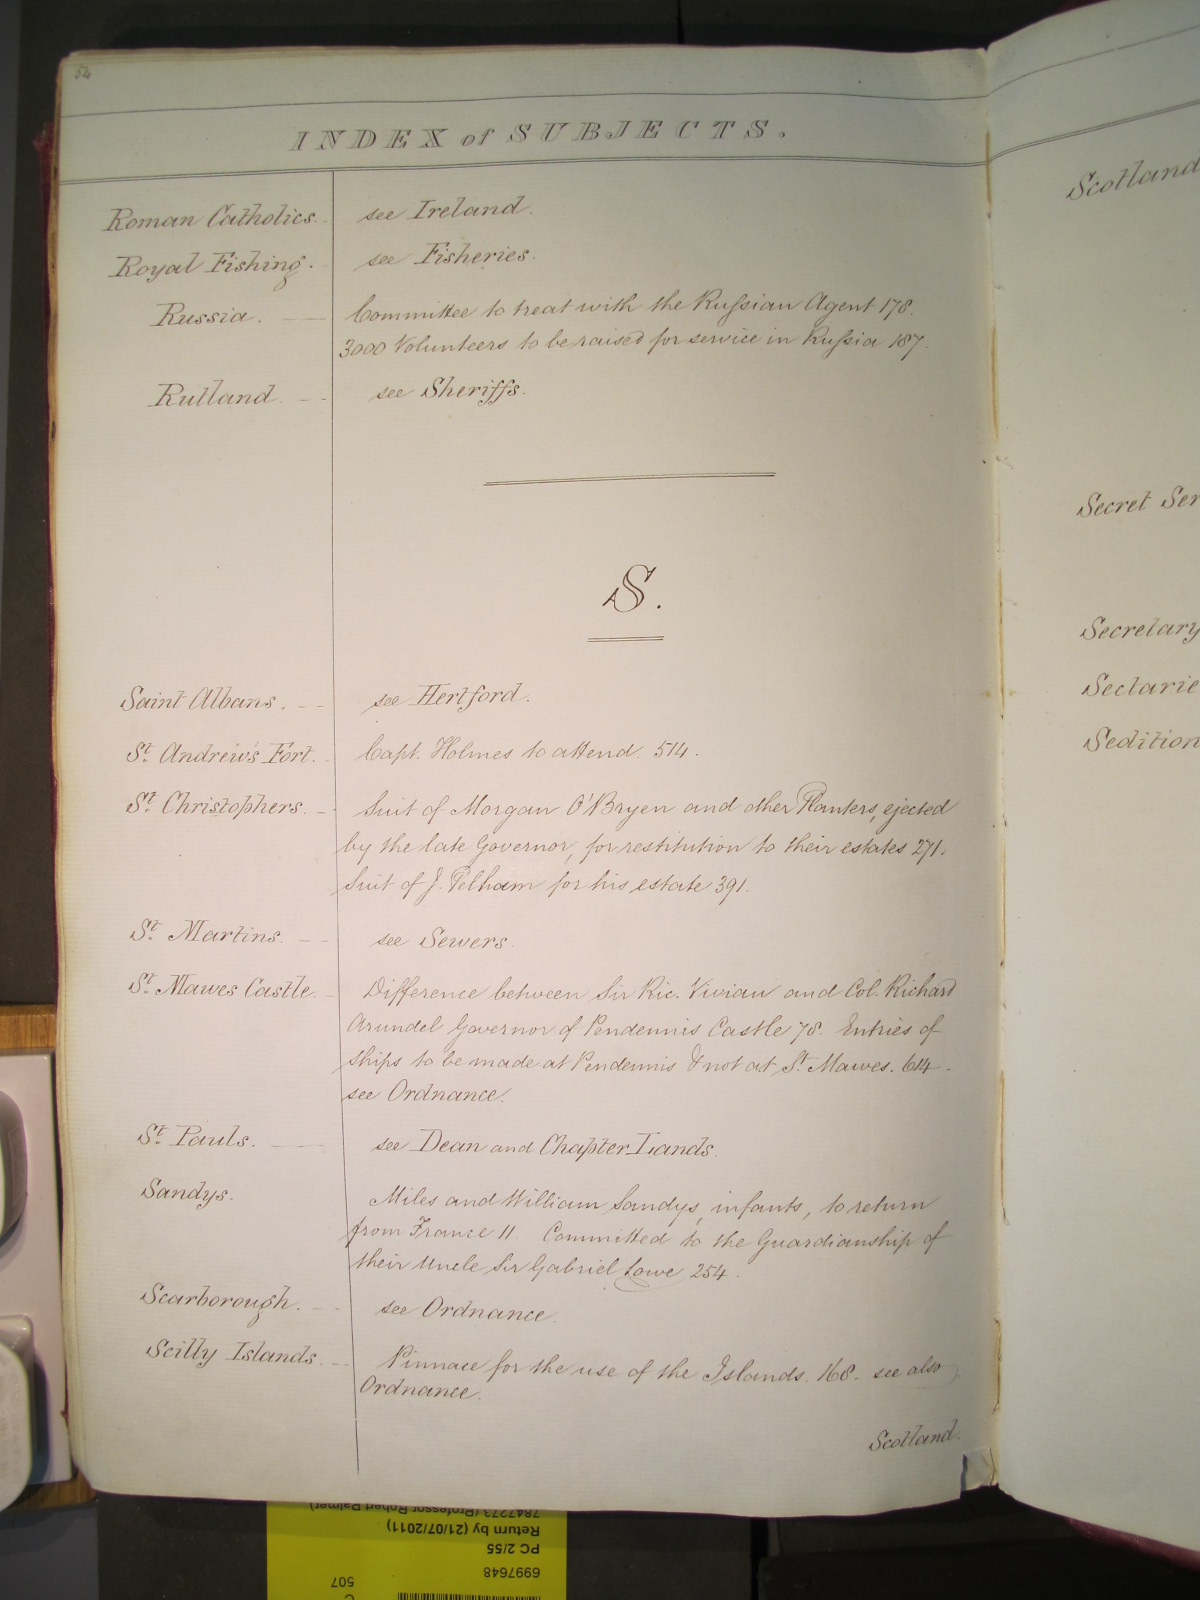 54
INDEX of SUBJECTS.
Roman Catholics. see Ireland.
Royal Fishing. see Fisheries.
Russia. Committee to treat with the Russian Agent 178.
3000 Volunteers to be raised for service in Russia 187.
Rutland. see Sheriffs.
S.
Saint Albans. see Hertford.
St. Andrew's Fort. Capt. Holmes to attend. 514.
St. Christophers. Suit of Morgan O'Bryen and other Planters, ejected
by the late Governor, for restitution to their estates 271.
Suit of J. Pelham for his estate 391.
St. Martins. see Sewers.
St. Mawes Castle. Difference between Sir Ric. Vivian and Col. Richard
Arundel Governor of Pendennis Castle 78. Entries of
ships to be made at Pendennis & not at St. Mawes. 614.
see Ordnance.
St. Pauls. see Dean and Chapter Lands.
Sandys. Miles and William Sandys, infants, to return
from France 11. Committed to the Guardianship of
their Uncle Sir Gabriel Lowe 254.
Scarborough. see Ordnance.
Scilly Islands. Pinnace for the use of the Islands. 168. see also
Ordnance.
Scotland.
Scotland
Secret Ser
Secretary
Sectarie
Sedition
7847273 (Professor Robert Palmer)
Return by (21/07/2011)
PC 2/55
6997648
507